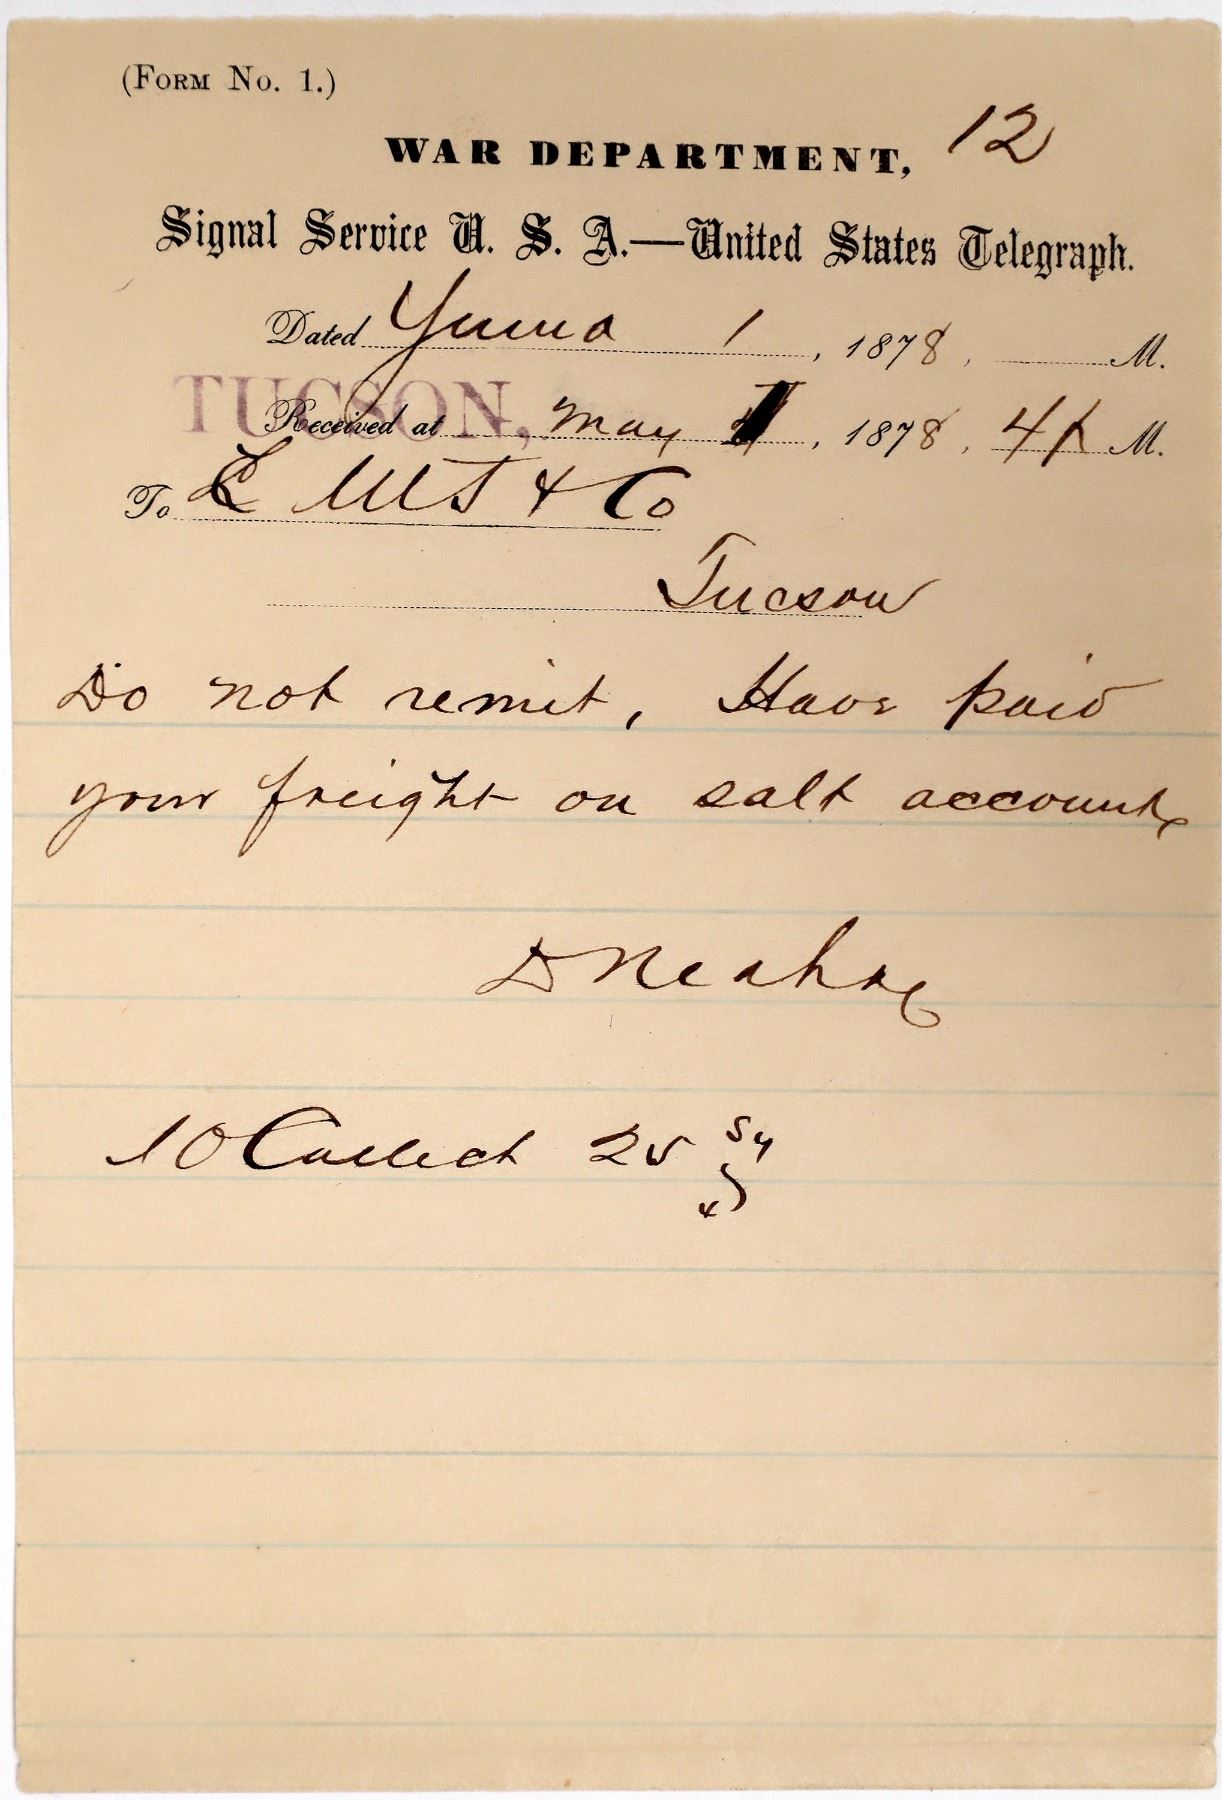 (Form No. 1.)
12
WAR DEPARTMENT,
Signal Service U. S. A.—United States Telegraph.
Dated Yuma 1, 1878, M.
TUCSON,
Received at May, 1878, 4 P M.
To & Co
Tucson
Do not remit, Have paid
your freight on salt account
D Neahr
10 Collect 25